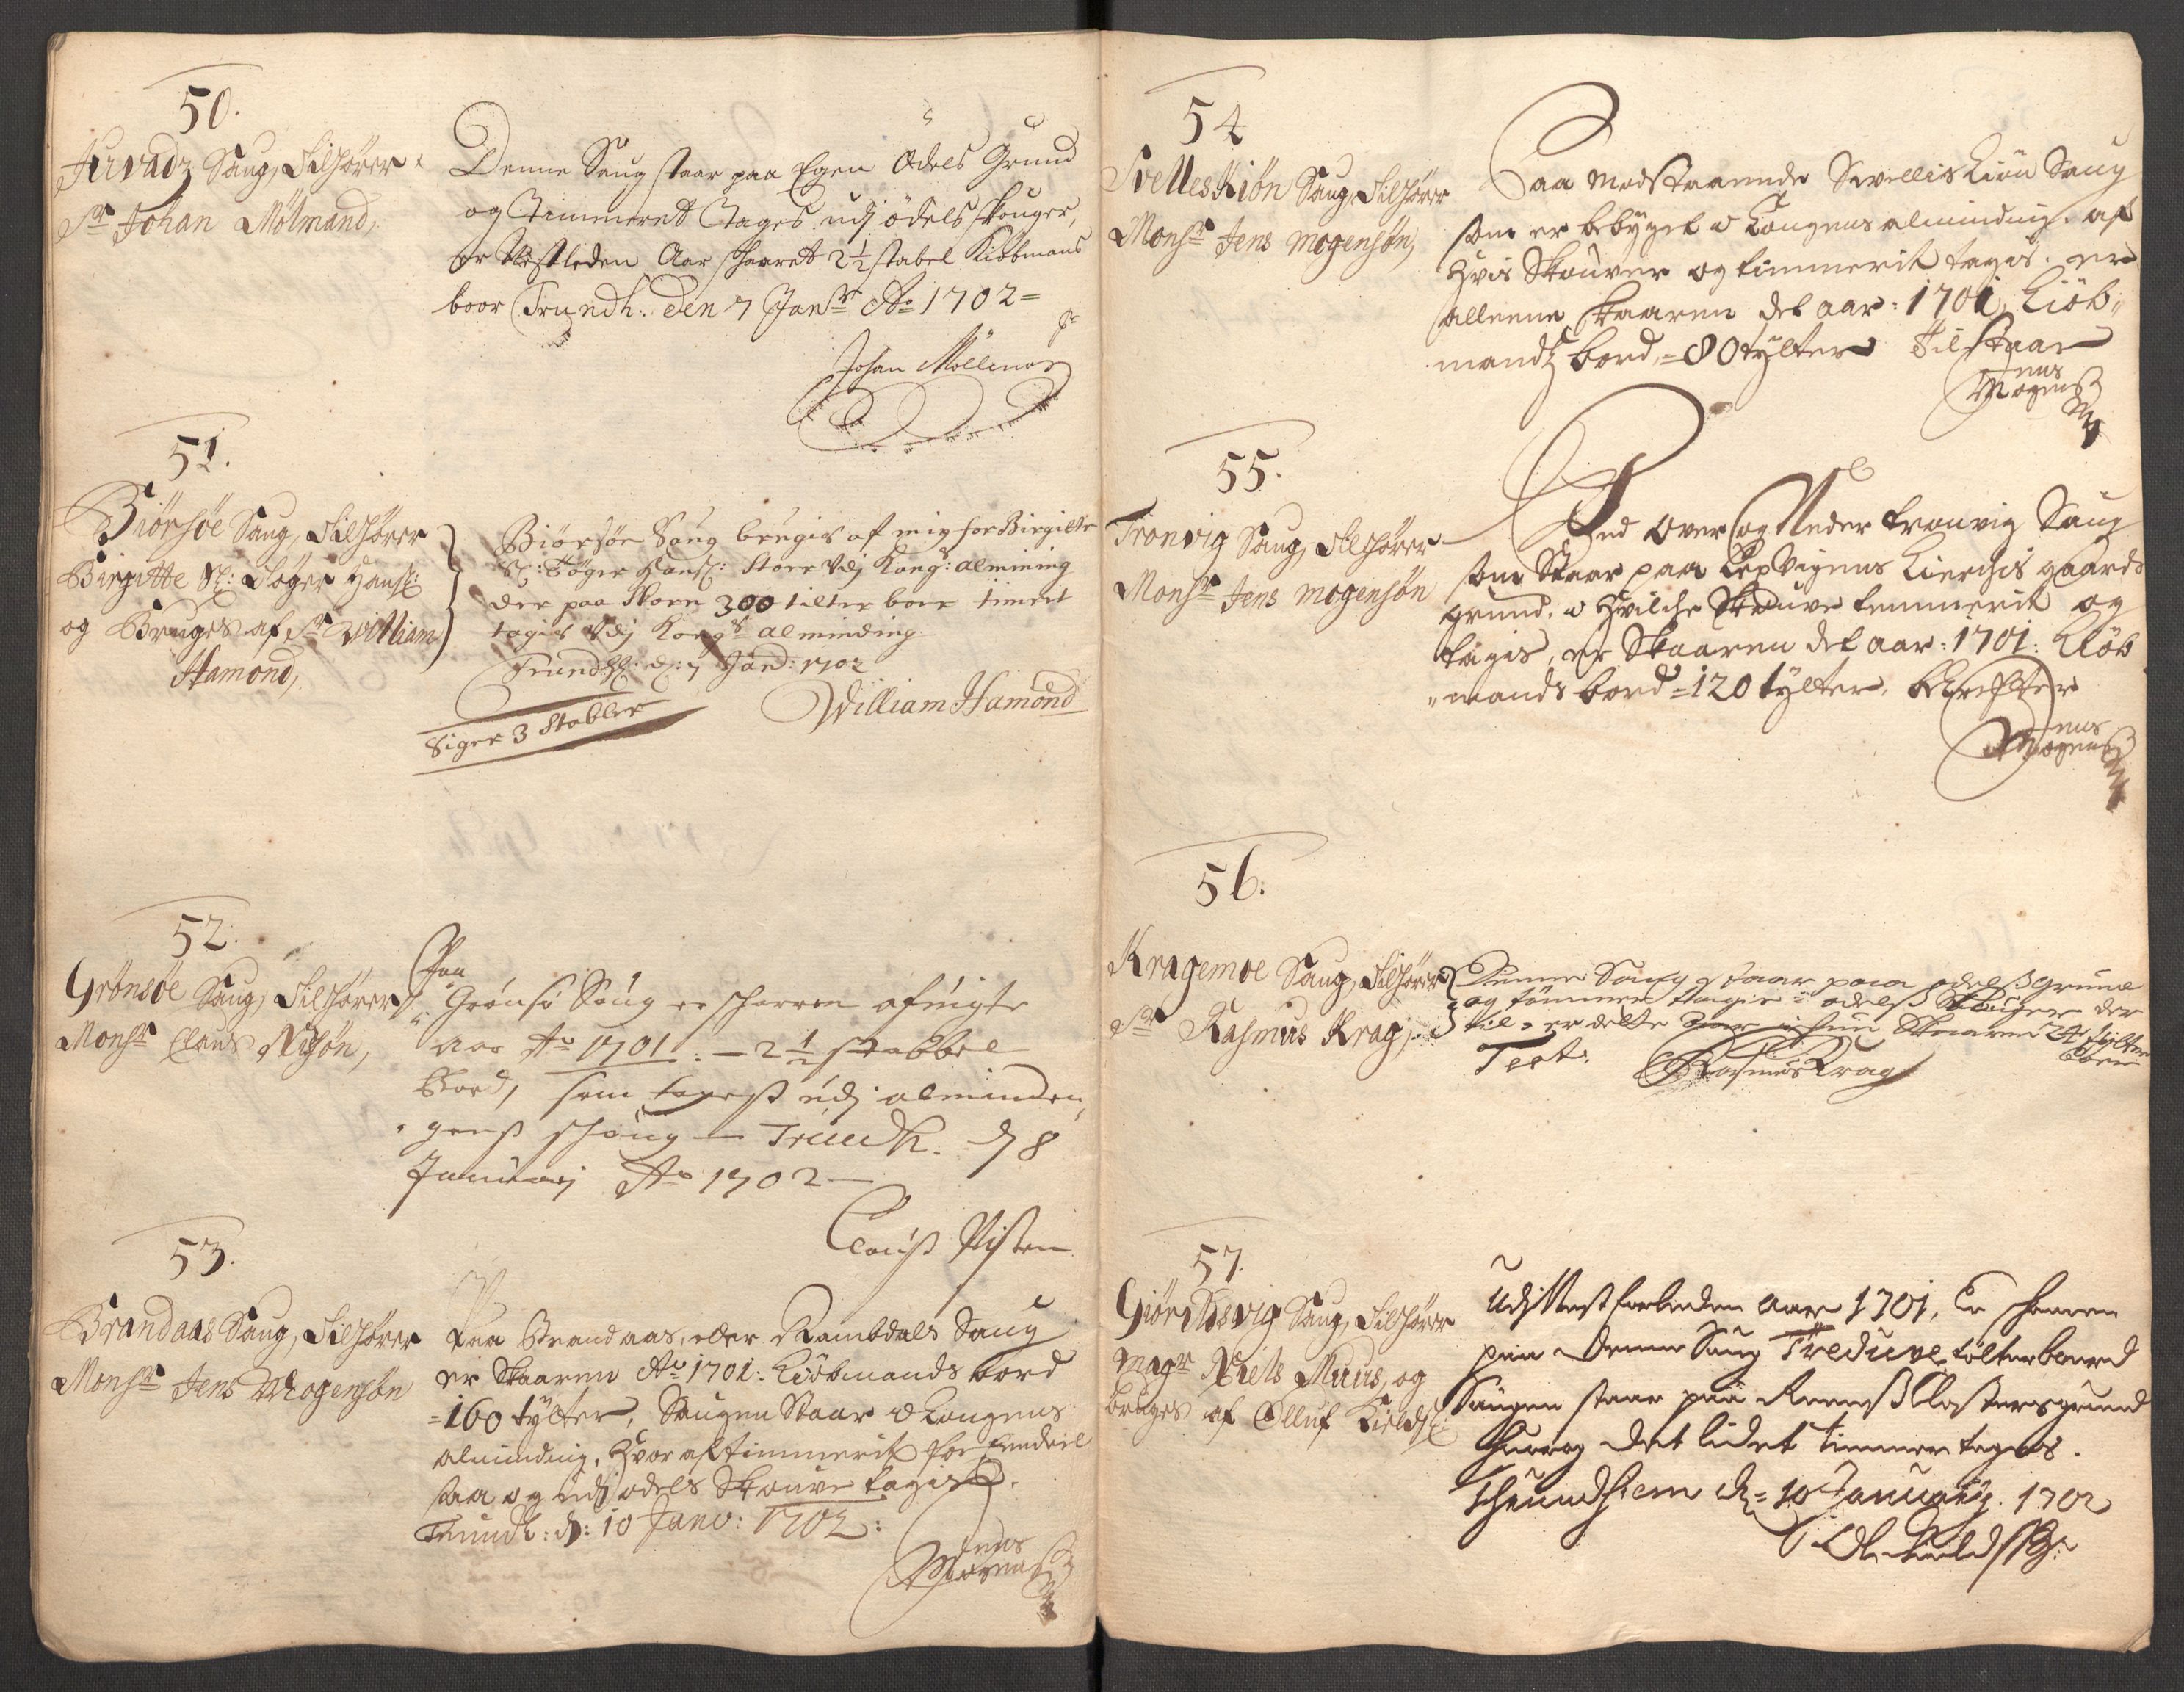 50.
Juvadz Saug, Tilhører
Sr Johan Mølmand,
Denne Saug staar paa Egen Odels Grund
og Timmeret Tages udj ödels skouger,
er Nestleden Aar skaaret 2½ stabel Kiöbmans
boor Trundh. den 7 Janr Ao 1702 =
Johan Möllman
51.
Biørsøe Saug, Tilhører
Birgitte Sl: Tøger Hans:
og Bruges af Sr William
Hamond,
Biörsöe Saug brugis af mig for Birgitte
Sl: Töger Hans: staar Udj Kong: almining
der paa skorn 300 tilter bor timret
tagis Udj Kongs alminding
Trundh: d: 7 Janv: 1702
William Hamond
Siger 3 Stabler
52.
Grønsøe Saug, Tilhører
Monsr Claus Nisøn,
Paa
Grönsö Saug er schorren afuigte
aar Ao 1701: - 2½ stabbel
Bord, som tageß udj alminden,,
,,genß schoug - Trundh. d 8
Januarj Ao 1702 -
Clauß Nißen
53.
Brandaas Saug, Tilhører
Monsr Jens Mogensøn
Paa Brandaas, eller Rambdals Saug
er Skaaren Ao 1701: Kiöbmands bord
=160 tylter, Saugen Staar i Kongens
alminding, Hvor af timmerit for Eendeel
saa og udj odels Skouve tagis.
Trundh: d: 10 Janv: 1702:
Jens
Mogensß
54
SvellesKiøn Saug, Tilhører
Monsr Jens Mogensøn,
Paa modstaaende Svellis Kiön Saug
som er bebygget i Kongens alminding. af
Hvis Skouver og timmerit tagis. er
alleene skaaren det aar: 1701, Kiöb,,
mandz bord, =80 tylter Tilstaar
Jens
Mogensß
55.
Tronvig Saug, Tilhører
Monsr Jens Mogensøn
Ved Over og Neder tronvig Saug
som Staar paa Lepvigens Kierchis gaards
grund. i Hvilche Skouve temmerit og
tagis, er Skaaren det aar: 1701: Kiöb
,,mands bord =120 tylter,
Jens
Mogensß
56.
Kragemoe Saug, Tilhører
Sr Rasmus Krag,
Denne Saug staar paa odelß grund
og tömmer tagis i odelß Skouger der
til, er dette aar ichun Skaaren 24 tylter
Bord
Test.
Rasmus Krag
57.
Giørildsvig Saug, Tilhører
Magr Niels Muus, og
bruges af Olluf Kieldß:
Udj Nest forleeden Aar 1701. Er schaaren
paa denne Saug Treduve tölter boord
Saugen staar paa Reenß Closters grund
hvorog det lidet timmer tages.
Thrundhiem d. = 10 January. 1702
Ol. Kieldßß: